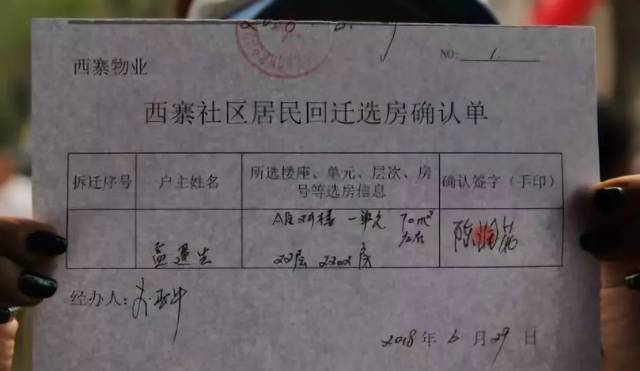 西寨物业
NO: 1
西寨社区居民回迁选房确认单
拆迁序号
户主姓名
所选楼座、单元、层次、房
号等选房信息
确认签字（手印）
一单元 70m²
左右
22层 2202房
经办人：
2018年6月29日